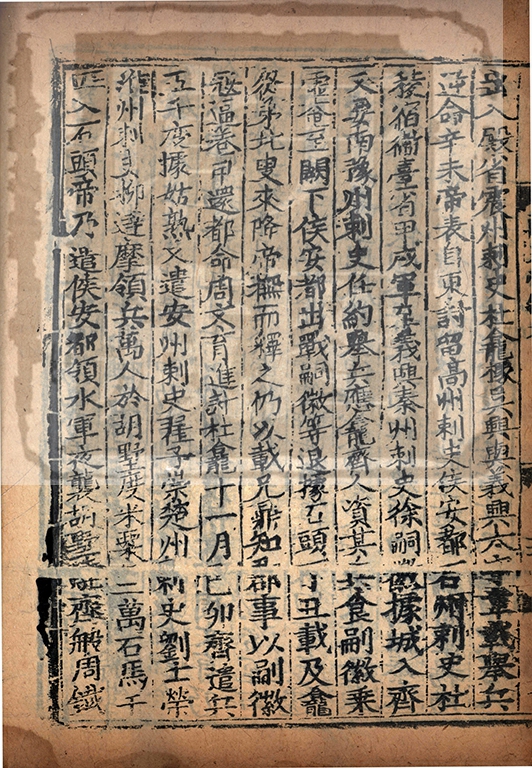 出入殿省震州刺史杜龕據吳興與義興太守韋載舉兵
逆命辛未帝表自東討留高州刺史侯安都石州刺史杜
稜宿衛臺省甲戌軍至義興秦州刺史徐嗣徽據城入齊
又要南豫州刺史任約舉兵應龕齊人資其兵食嗣徽乘
虛奄至闕下侯安都出戰嗣徽等退據石頭丁丑載及龕
從弟北叟來降帝撫而釋之仍以載兄鼎知郡事以嗣徽
寇逼卷甲還都命周文育進討杜龕十一月己卯齊遣兵
五千度據姑熟又遣安州刺史翟子崇楚州刺史劉士榮
淮州刺史柳達摩領兵萬人於胡墅度米粟三萬石馬千
匹入石頭帝乃遣侯安都領水軍夜襲胡墅燒齊船周鐵